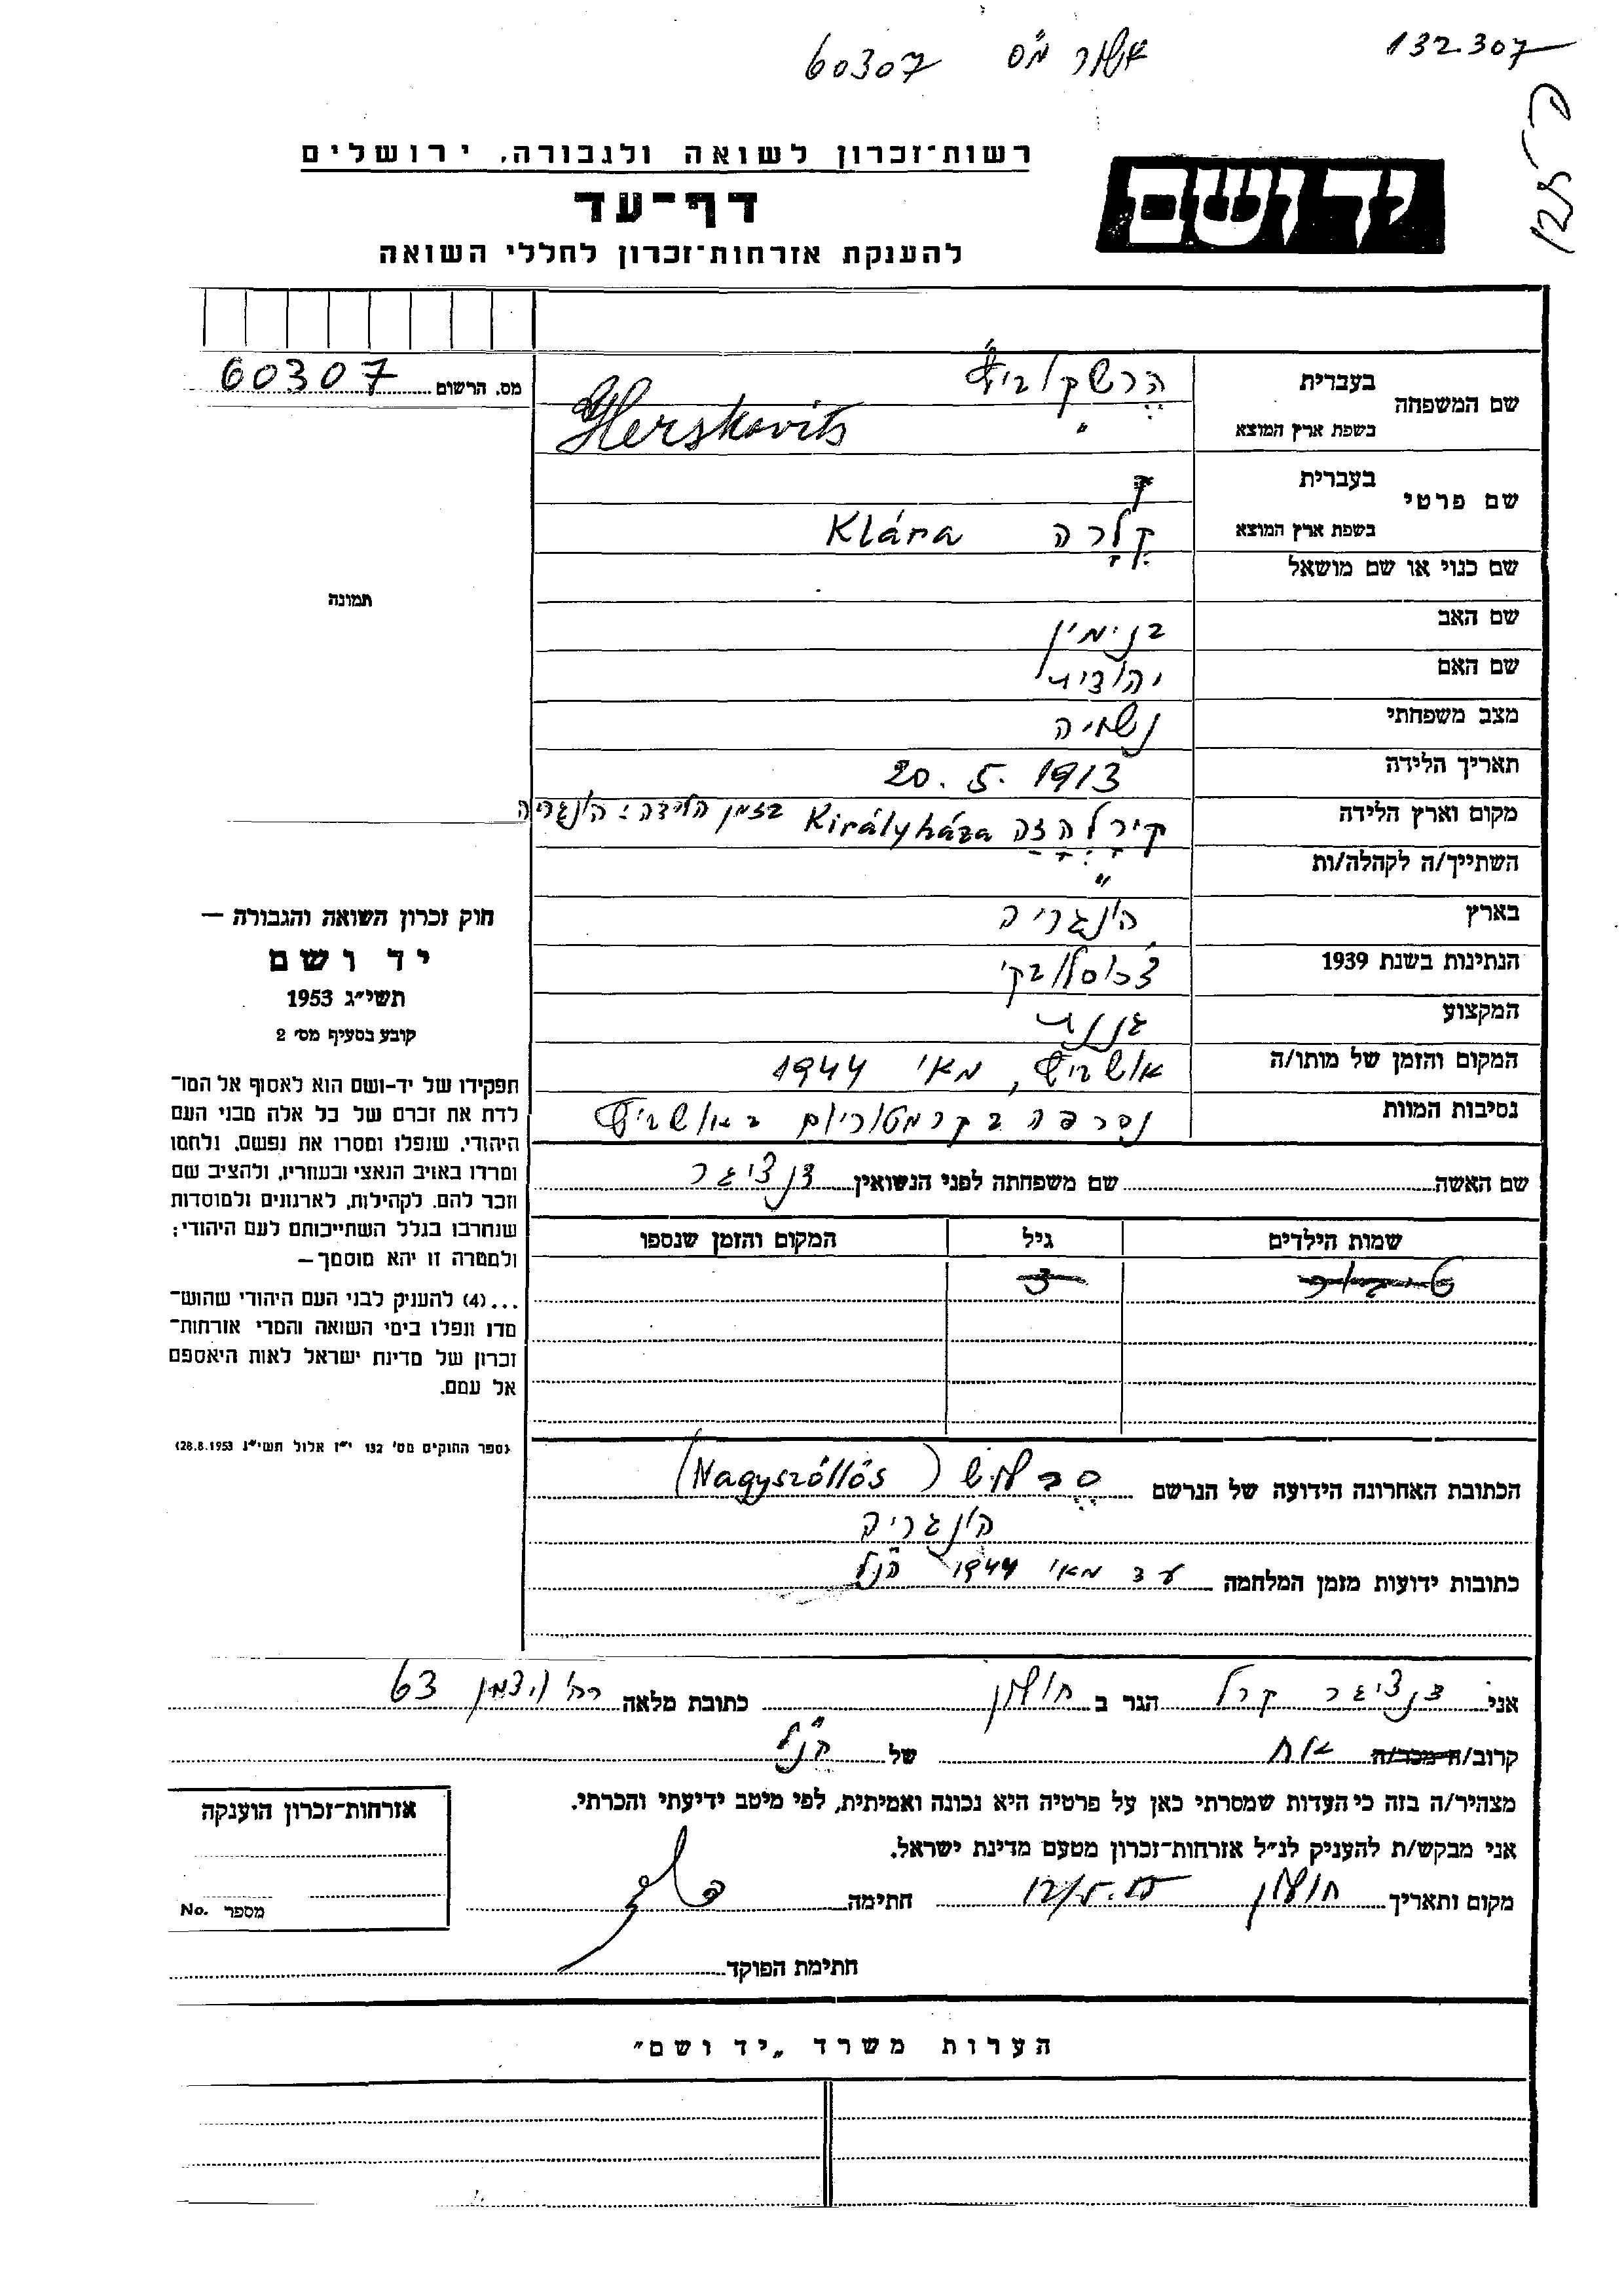 132.307
אשור מס 60307
יד ושם
רשות־זכרון לשואה ולגבורה, ירושלים
דף־עד
להענקת אזרחות־זכרון לחללי השואה
מס. הרשום 60307
שם המשפחה בעברית הרשקוביץ'
בשפת ארץ המוצא " Herskovits
שם פרטי בעברית
בשפת ארץ המוצא קלרה Klára
שם כנוי או שם מושאל
שם האב בנימין
שם האם יהודית
מצב משפחתי נשואה
תאריך הלידה 20.5.1913
מקום וארץ הלידה קירלהזה Királyháza בזמן הלידה: הונגריה
השתייך/ה לקהלה/ות "
בארץ הונגריה
הנתינות בשנת 1939 צ'כוסלובקי
המקצוע גננת
המקום והזמן של מותו/ה אושביץ, מאי 1944
נסיבות המוות נספה בקרמטוריום באושביץ
שם האשה שם משפחתה לפני הנשואין דנציגר
שמות הילדים גיל המקום והזמן שנספו
תמונה
חוק זכרון השואה והגבורה —
יד ושם
תשי״ג 1953
קובע בסעיף מס׳ 2
תפקידו של יד-ושם הוא לאסוף אל המו־
לדת את זכרם של כל אלה מבני העם
היהודי, שנפלו ומסרו את נפשם, נלחמו
ומרדו באויב הנאצי ובעוזריו, ולהציב שם
וזכר להם, לקהילות, לארגונים ולמוסדות
שנחרבו בגלל השתייכותם לעם היהודי;
ולמטרה זו יהא מוסמך—
...(4) להעניק לבני העם היהודי שהוש־
מדו ונפלו בימי השואה והמרי אזרחות־
זכרון של מדינת ישראל לאות היאספם
אל עמם.
(ספר החוקים מס׳ 132 י״ז אלול תשי״ג 28.8.1953)
הכתובת האחרונה הידועה של הנרשם סבלוש (Nagyszöllős)
הונגריה
כתובות ידועות מזמן המלחמה עד מאי 1944 הנ"ל
אני דנציגר קרל הגר ב חולון כתובת מלאה רח' ויצמן 63
קרוב/ה מכר/ה אח של הנ"ל
מצהיר/ה בזה כי העדות שמסרתי כאן על פרטיה היא נכונה ואמיתית, לפי מיטב ידיעתי והכרתי.
אני מבקש/ת להעניק לנ״ל אזרחות־זכרון מטעם מדינת ישראל.
מקום ותאריך חולון חתימה
חתימת הפוקד
אזרחות־זכרון הוענקה
מספר No.
הערות משרד „יד ושם״